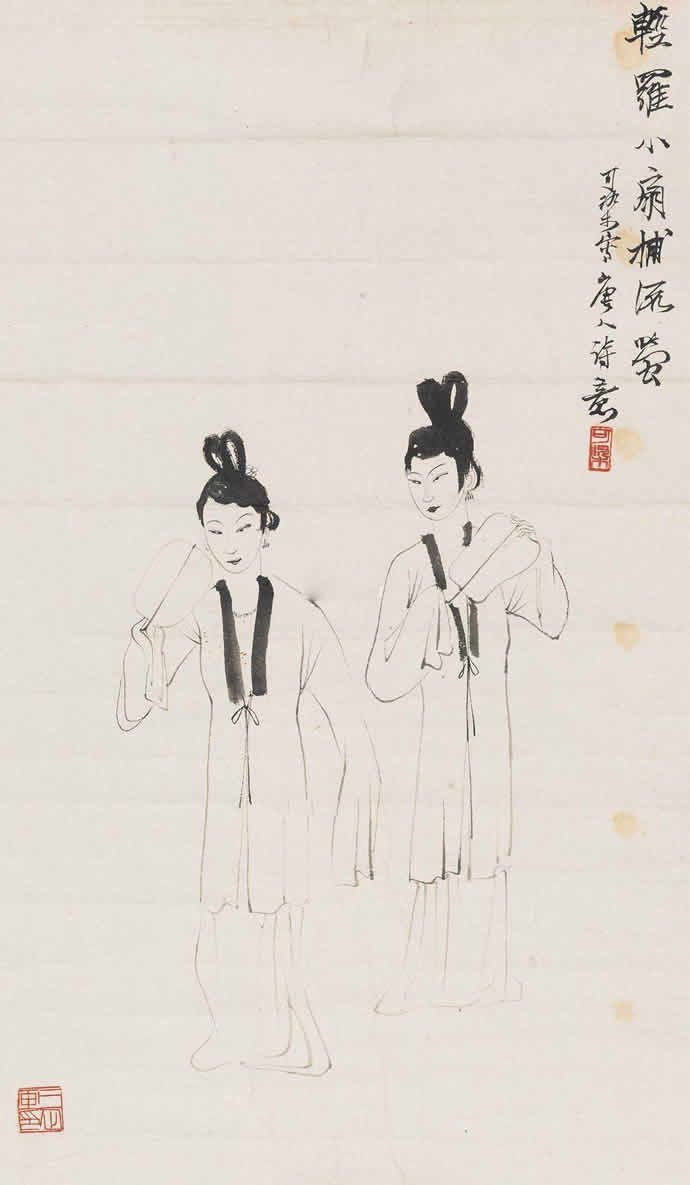 輕羅小扇捕流螢
可染寫唐人詩意
可染